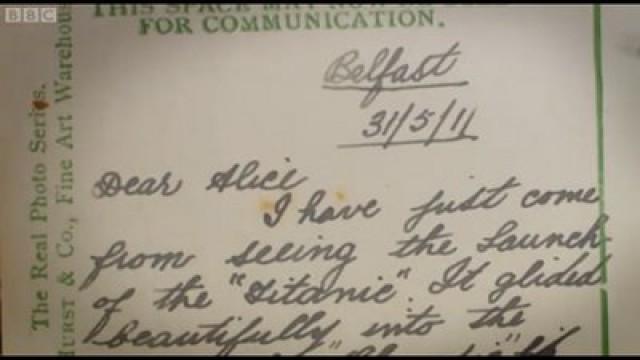 BBC
THIS SPACE MAY NOW
FOR COMMUNICATION.
The Real Photo Series.
HURST & Co., Fine Art Warehous
Belfast
31/5/11
Dear Alice
I have just come
from seeing the launch
of the "Titanic". It glided
beautifully into the